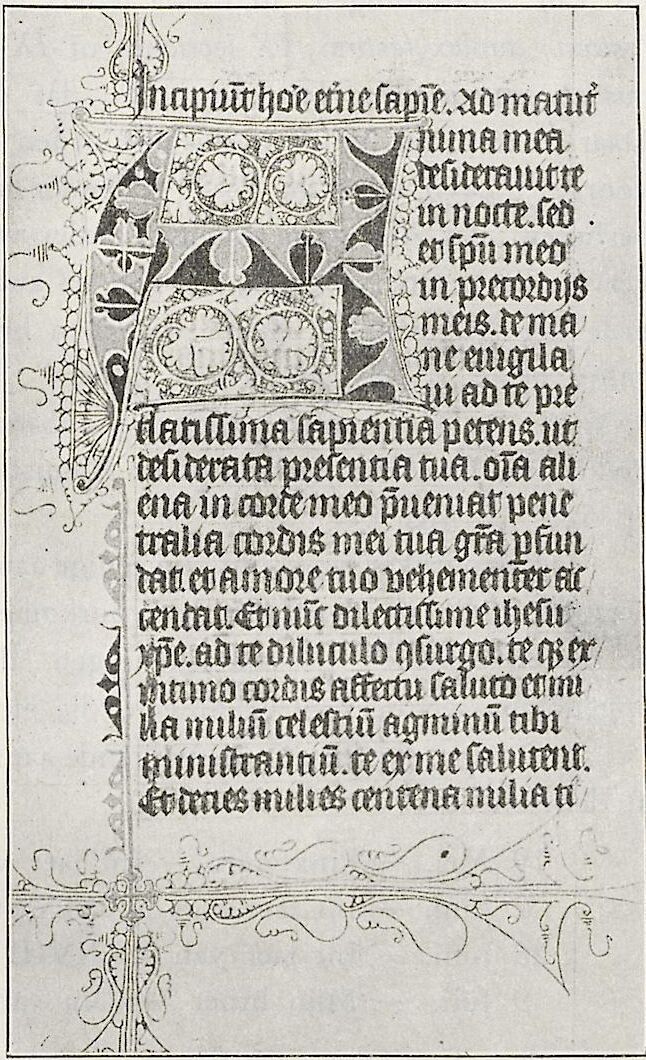 Incipiūt hor̄e et̄ne sapīe. Ad matut̄
Anima mea
desiderauit te
in nocte. sed
et spū meo
in precordijs
meis. de ma
ne euigila
ui ad te pre
clarissima sapientia petens. ut
desiderata presentia tua. oīa ali
ena in corde meo p̄ueniat pene
tralia cordis mei tua gr̄a ꝑfun
dat. et amore tuo vehement̄er ac
cendat. Et nūc dilectissime ihesu
xp̄e. ad te diluculo ꝯsurgo. te qꝫ ex
intimo cordis affectu saluto et mi
lia miliū celestiū agminū tibi
ministrantiū. te ex me salutent.
Et decies milies centena milia ti